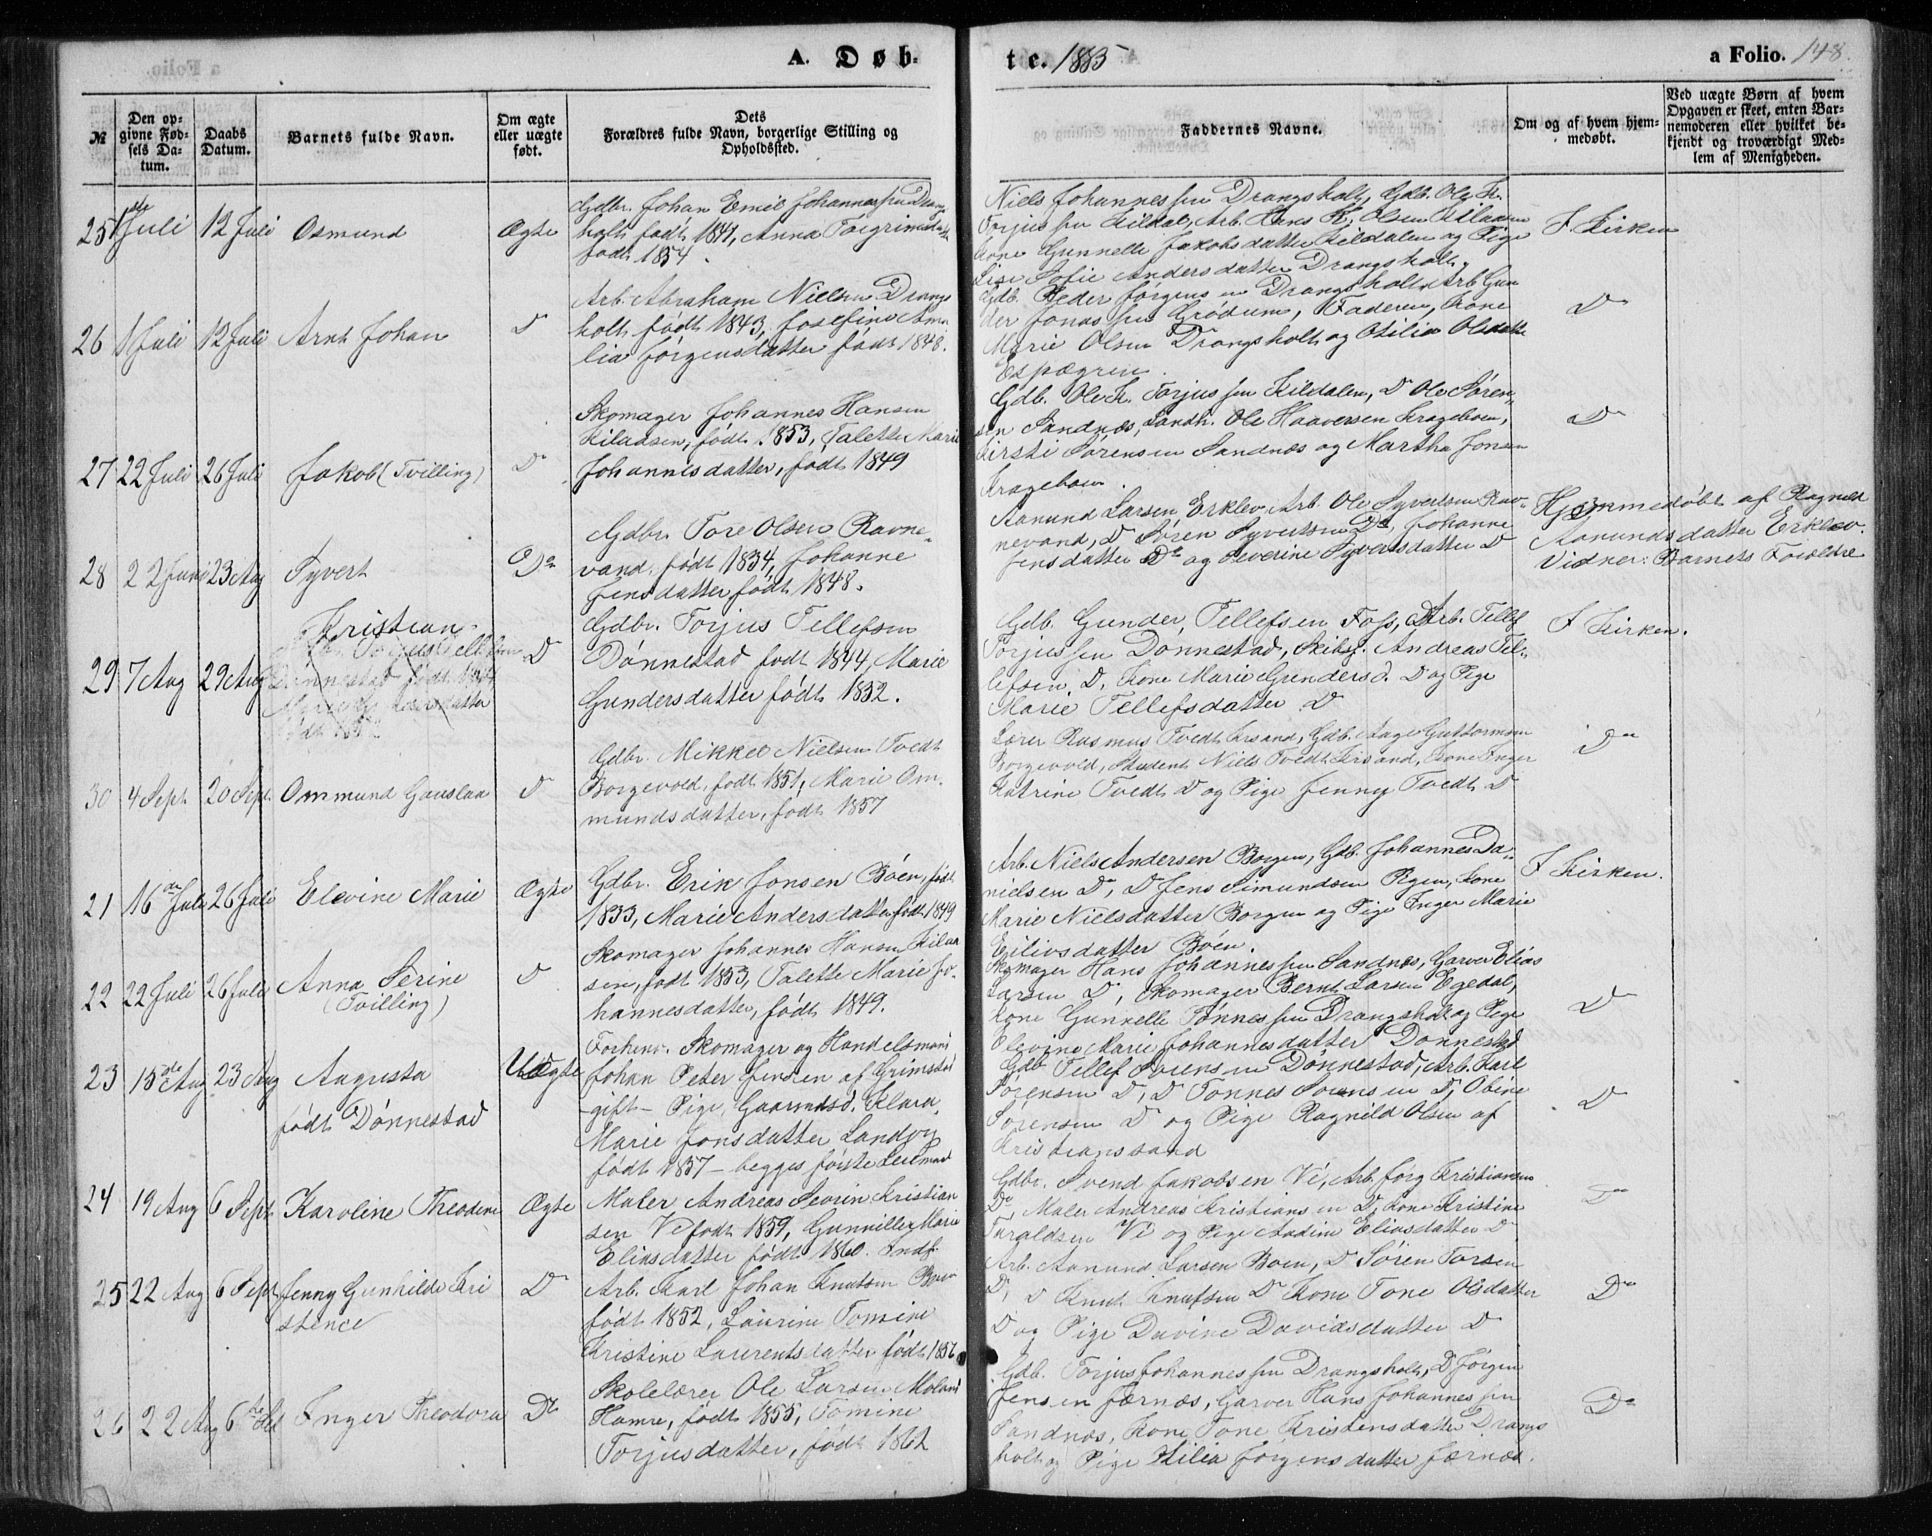 A. Døb-
te. 1885
a Folio. 148.
№
Den op-
givne Fød-
sels Da-
tum.
Daabs
Datum.
Barnets fulde Navn.
Om ægte
eller uægte
født.
Dets
Forældres fulde Navn, borgerlige Stilling og
Opholdssted.
Faddernes Navne.
Om og af hvem hjem-
medøbt.
Ved uægte Børn af hvem
Opgaven er skeet, enten Bar-
nemoderen eller hvilket be-
kjendt og troværdigt Med-
lem af Menigheden.
25 1ste Juli 12 Juli Osmund Ægte
Gdbr. Johan Emil Johannessen Drangs
holt født 1841, Anna Torgrimsdatter
født 1854.
Niels Johannessen Drangsholt, Gdb. Ole K.
Torjussen Kildal, Arb. Hans K. Olsen Kiland
Kone Gunnelle Jakobsdatter Kildalen og Pige
Lise Sofie Andersdatter Drangsholt.
I Kirken
26 1 Juli 12 Juli Arnt Johan D
Arb. Abraham Nielsen Drangs
holt født 1843, Josefine Ama
lia Jørgensdatter født 1848.
Gdb. Peder Jørgensen Drangsholt, Arb Gun
der Jonassen Grødum, Faderen, Kone
Marie Olsen Drangsholt og Otilia Olsdatter
Espægren.
D
27 22 Juli 26 Juli Jakob (Tvilling) Do
Skomager Johannes Hansen
Kiladsen, født 1853, Talette Marie
Johannesdatter, født 1849
Gdb. Ole K. Torjussen Kildalen, Do Ole Søren-
sen Sandnæs, Landh. Ole Haaversen Krageboen,
Kirsti Sørensen Sandnæs og Martha Jonsen
Krageboen.
Do
28 22 Juni 23 Aug Syvert Do
Gdbr. Tore Olsen Ravne-
vand, født 1834, Johanne
Jensdatter født 1848.
Aanund Larsen Erklev, Arb. Ole Syvertsen Rav-
nevand, D Søren Syvertsen Do, Johanne
Jensdatter Do og Severine Syvertsdatter D
Hjemmedøbt af Ragnild
Aanundsdatter Erklev.
Vidner: Barnets Forældre
29 7 Aug 29 Aug Kristian D
Gdbr. Torjus Tellefsen
Dønnestad født 1844, Marie
Gundersdatter født 1852.
Gdb. Gunder Tellefsen Foss, Arb. Tellef
Torjussen Dønnestad, Skibsf. Andreas Tel-
lefsen D, Kone Marie Gundersd. D og Pige
Marie Tellefsdatter D
I Kirken.
30 4 Sept 20 Sept. Ommund Gauslaa D
Gdbr. Mikkel Nielsen Tvedt
Borgevold, født 1851, Marie Om-
mundsdatter, født 1857
Lærer Rasmus Tvedt Krsand, Gdb. Aage Guttormsen
Borgevold, Student Niels Tvedt Krsand, Kone Inger
Katrine Tvedt D og Pige Jenny Tvedt D
Do
21 16de Juli 26 Juli Elevine Marie Ægte
Gdbr. Erik Jonsen Bøen, født
1833, Marie Andersdatter født 1849
Arb. Niels Andersen Boen, Gdb. Johannes Da-
nielsen Do, D Jens Simundsen Rigen, Kone
Marie Nielsdatter Borgen og Pige Inger Marie
Eiliosdatter Bøen.
I Kirken.
22 22 Juli 26 Juli Anna Serine
(Tvilling) D
Skomager Johannes Hansen Kilaa
sen, født 1853, Talette Marie Jo-
hannesdatter, født 1849.
Skomager Hans Johannessen Sandnæs, Garver Elias
Larsen D, Skomager Bernt Larsen Egedal,
Kone Gunnelle Tønnessen Drangsholt og Pige
Elevine Marie Johannesdatter Dønnestad
D
23 15de Aug 23 Aug Augusta
født Dønnestad
Uægte
Forhenv. Skomager og Handelsmand
Johan Peter Jensen af Grimstad
gift - Pige, Gaarmdsd. Klara
Marie Jonsdatter Landvig
født 1857 - begges første Leiermaal
Gdb Tellef Sørensen Dønnestad, Arb. Karl
Sørensen D, D Tønnes Sørensen D, Obine
Sørensen D og Pige Ragnild Olsen af
Kristianssand
D
24 19 Aug 6 Sept. Karoline Theodine Ægte
Maler Andreas Severin Kristian
sen Vé født 1859, Gunnille Marie
Eliasdatter født 1860. Indf.
Gdbr. Svend Jakobsen Vé, Arb. Jørg Kristiansen
Do, Maler Andreas Kristiansen D, Kone Kristine
Taraldsen Vé og Pige Andine Eliasdatter D
Do
25 22 Aug 6 Sept. Jenny Gunhilde Kri
stence D
Arb. Karl Johan Knutsen Boen
født 1852, Laurine Tomine
Kristine Laurentsdatter født 1856
Arb. Aanund Larsen Boen, D Søren Torsen
D, D Knut Knutsen D Kone Tone Olsdatter
D og Pige Davine Davidsdatter D
Do
26 22 Aug 6te Sept Inger Theodora Do
Skolelærer Ole Larsen Moland
Hamre, født 1855, Tomine
Torjusdatter, født 1862
Gdb. Torjus Johannessen Drangsholt, D Jørgen
Jensen Færnæs, Garver Hans Johannessen
Sandnæs, Kone Tone Kristensdatter Drangs
holt og Pige Otilia Jørgensdatter Færnæs.
Do